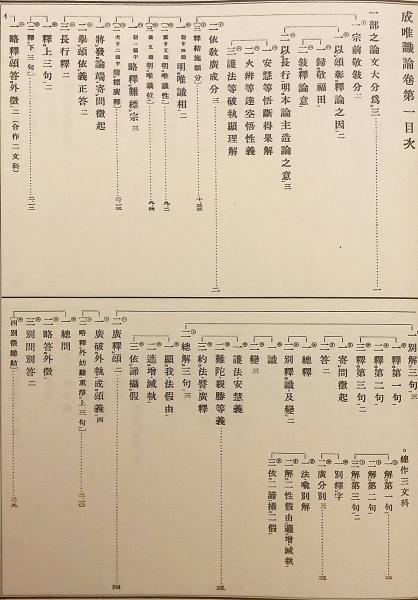 成唯識論卷第一目次
一部之論文大分爲三
一宗前敬敍分二
以頌彰釋論之因二
一歸敬福田
二敍釋論意
二以長行明本論主造論之意三
一安慧等悟斷得果解
二火辨等達空悟性義
三護法等破執顯理解
二依敎廣成分三
三釋結施願分
一明唯識相二
二明唯識性
三明唯識位
一略釋難標宗三
一將發論端寄問徵起
二擧頌依義正答二
三長行釋二
一釋上三句二
一略釋頌答外徵二
一別解三句三
一釋第一句
二釋第二句二
三釋第三句二
一寄問徵起
二答二
識
變三
二別釋識及變二
一總釋
一護法安慧義
二難陀親勝等義
三約法譬廣釋
二總解三句三
一顯我法假由
二遮增減執
三依諦攝假
二廣釋頌二
一廣破外執成頌義四
一總問
二略答外徵
三別問別答二
四別徵總結
總作三文科
一解第一句二
二解第二句
三解第三句二
一別釋字
二廣分別三
一法喩別解
二解二性假由遮增減執
三依二諦攝二假